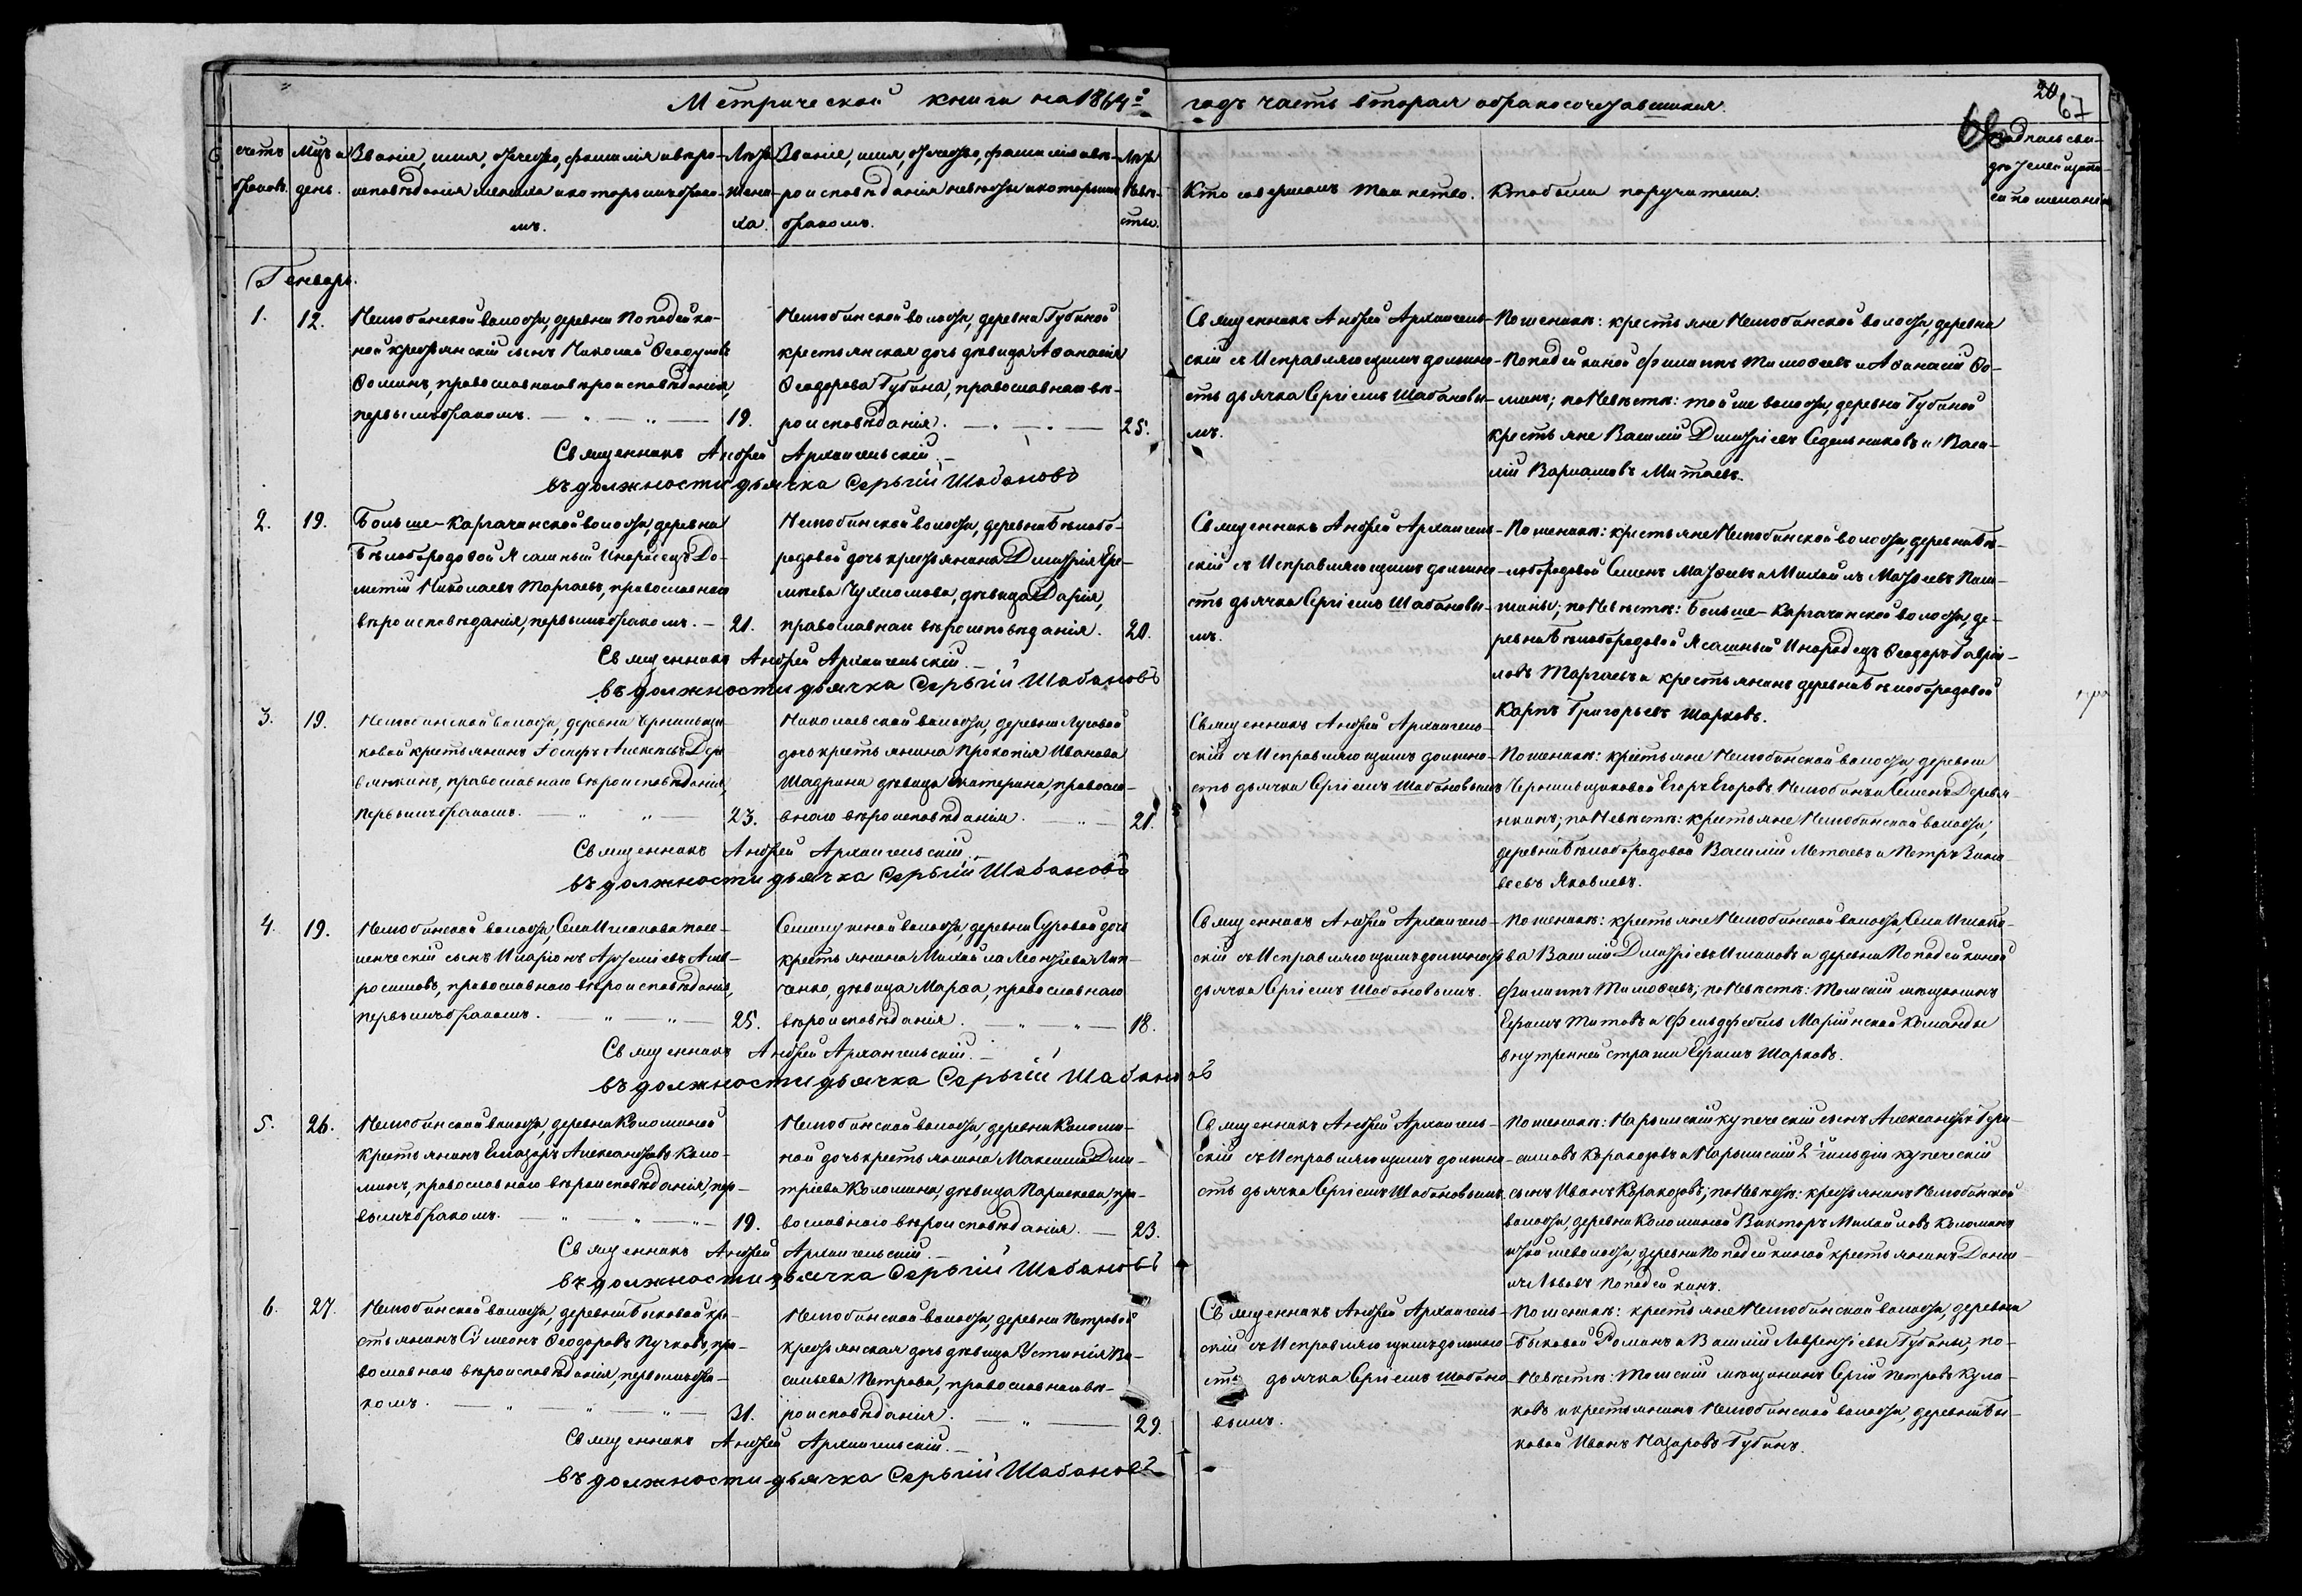 Метрической книги на 1864й годъ часть вторая о бракосочетавшихся.
20
67
68
счетъ браковъ.
Мцъ и день.
Званіе, имя, отчество, фамилія и вѣро-
исповѣданіе жениха и которымъ брако-
мъ.
Лѣта
жени-
ха.
Званіе, имя, отчество, фамилія и вѣ-
роисповѣданіе невѣсты и которымъ
бракомъ.
Лѣта
Невѣ-
сты.
Кто совершалъ таинство.
Кто были поручители.
Подпись сви-
дѣтелей записи
по желанію
Генварь.
1.
12.
Нелюбинской волости, деревни Попадейки-
ной крестьянскій сынъ Николай Ѳеодуловъ
Ѳоминъ, православнаго вѣроисповѣданія,
первымъ бракомъ.
19.
Нелюбинской волости, деревни Губиной
крестьянская дочь дѣвица Аѳанасія
Ѳеодорова Губина, православнаго вѣ-
роисповѣданія.
25.
Священникъ Андрей Архангель-
скій съ Исправляющимъ должно-
сть дьячка Сергіемъ Шабановы-
мъ.
По женихѣ: крестьяне Нелюбинской волости, деревни
Попадейкиной Филиппъ Тимоѳеевъ и Аѳанасій Ѳо-
минъ; по Невѣстѣ: той же волости, деревни Губиной
крестьяне Василій Димитріевъ Седельниковъ и Васи-
лій Варламовъ Митаевъ.
Священникъ Андрей Архангельскій.
въ должности дьячка Сергѣй Шабановъ
2.
19.
Больше-Каргачинской волости, деревни
Бѣлобородовой Ясашный Инородецъ До-
метій Николаевъ Таргаевъ, православнаго
вѣроисповѣданія, первымъ бракомъ.
21.
Нелюбинской волости, деревни Бѣлобо-
родовой дочь крестьянина Димитрія Ере-
мѣева Чухломова, дѣвица Дарія,
православнаго вѣроисповѣданія.
20.
Священникъ Андрей Архангель-
скій съ Исправляющимъ должно-
сть дьячка Сергіемъ Шабановы-
мъ.
По женихѣ: крестьяне Нелюбинской волости, деревни Бѣ-
лобородовой Семенъ Матѳеевъ и Михайлъ Матѳеевъ
по Невѣстѣ: Больше-Каргачинской волости, де-
ревни Бѣлобородовой Ясашный Инородецъ Ѳеодоръ Гаври-
ловъ Таргаевъ и крестьянинъ деревни Бѣлобородовой
Карпъ Григорьевъ Шарковъ.
Священникъ Андрей Архангельскій.
въ должности дьячка Сергѣй Шабановъ
3.
19.
Нелюбинской волости, деревни Чернильщи-
ковой крестьянинъ Іосифъ Алексѣевъ Дере-
вянкинъ, православнаго вѣроисповѣданія,
первымъ бракомъ.
23.
Николаевской волости, деревни Луговой
дочь крестьянина Прокопія Иванова
Шадрина дѣвица Екатерина, правосла-
внаго вѣроисповѣданія.
21.
Священникъ Андрей Архангель-
скій съ Исправляющимъ должно-
сть дьячка Сергіемъ Шабановымъ
По женихѣ: крестьяне Нелюбинской волости, деревни
Чернильщиковой Егоръ Егоровъ Нелюбинъ и Семенъ Деревя-
нкинъ; по Невѣстѣ: крестьяне Нелюбинской волости,
деревни Бѣлобородовой Василій Метаевъ и Петръ Зино-
веевъ Яковлевъ.
Священникъ Андрей Архангельскій.
въ должности дьячка Сергѣй Шабановъ
4.
19.
Нелюбинской волости, Села Ишанова посе-
ленческій сынъ Иларіонъ Артеміевъ Амв-
росимовъ, православнаго вѣроисповѣданія,
первымъ бракомъ.
25.
Семилужной волости, деревни Суровой дочь
крестьянина Михайла Леонтіева
дѣвица Марѳа, православнаго
вѣроисповѣданія.
18.
Священникъ Андрей Архангель-
скій съ Исправляющимъ должность
дьячка Сергіемъ Шабановымъ.
По женихѣ: крестьяне Нелюбинской волости, Села Ишано-
ва Василій Димитріевъ Ишановъ и деревни Попадейкиной
Филиппъ Тимоѳеевъ; по Невѣстѣ: Томскій мѣщанинъ
Ефимъ Титовъ и Фельдфебель Маріинской команды
внутренней стражи Ефимъ Шарковъ.
Священникъ Андрей Архангельскій.
въ должности дьячка Сергѣй Шабановъ
5.
26.
Нелюбинской волости, деревни Коломиной
крестьянинъ Елиазаръ Александровъ Коло-
минъ, православнаго вѣроисповѣданія, пер-
вымъ бракомъ.
19.
Нелюбинской волости, деревни Коломи-
ной дочь крестьянина Максима Дми-
тріева Коломина, дѣвица Параскева, пра-
вославнаго вѣроисповѣданія.
23.
Священникъ Андрей Архангель-
скій съ Исправляющимъ должно-
сть дьячка Сергіемъ Шабановымъ.
По женихѣ: Нарымскій купеческій сынъ Александръ Гера-
симовъ Каракозовъ и Нарымскій 2й гильдіи купеческій
сынъ Иванъ Каракозовъ; по Невѣстѣ: крестьянинъ Нелюбинской
волости, деревни Коломиной Викторъ Михайловъ Коломинъ
и той же волости, деревни Попадейкиной крестьянинъ Дани-
лъ Львовъ Попадейкинъ.
Священникъ Андрей Архангельскій.
въ должности дьячка Сергѣй Шабановъ
6.
27.
Нелюбинской волости, деревни Быковой кре-
стьянинъ Симеонъ Ѳеодоровъ Пучковъ, пра-
вославнаго вѣроисповѣданія, первымъ бра-
комъ.
31.
Нелюбинской волости, деревни Петровой
крестьянская дочь дѣвица Устинія Ва-
сильева Петрова, православнаго вѣ-
роисповѣданія.
29.
Священникъ Андрей Архангель-
скій съ Исправляющимъ должно-
сть дьячка Сергіемъ Шабано-
вымъ.
По женихѣ: крестьяне Нелюбинской волости, деревни
Быковой Романъ и Василій Лаврентіевы Губины; по
Невѣстѣ: Томскій мѣщанинъ Сергій Петровъ Кула-
ковъ и крестьянинъ Нелюбинской волости, деревни Бы-
ковой Иванъ Назаровъ Губинъ.
Священникъ Андрей Архангельскій.
въ должности дьячка Сергѣй Шабановъ